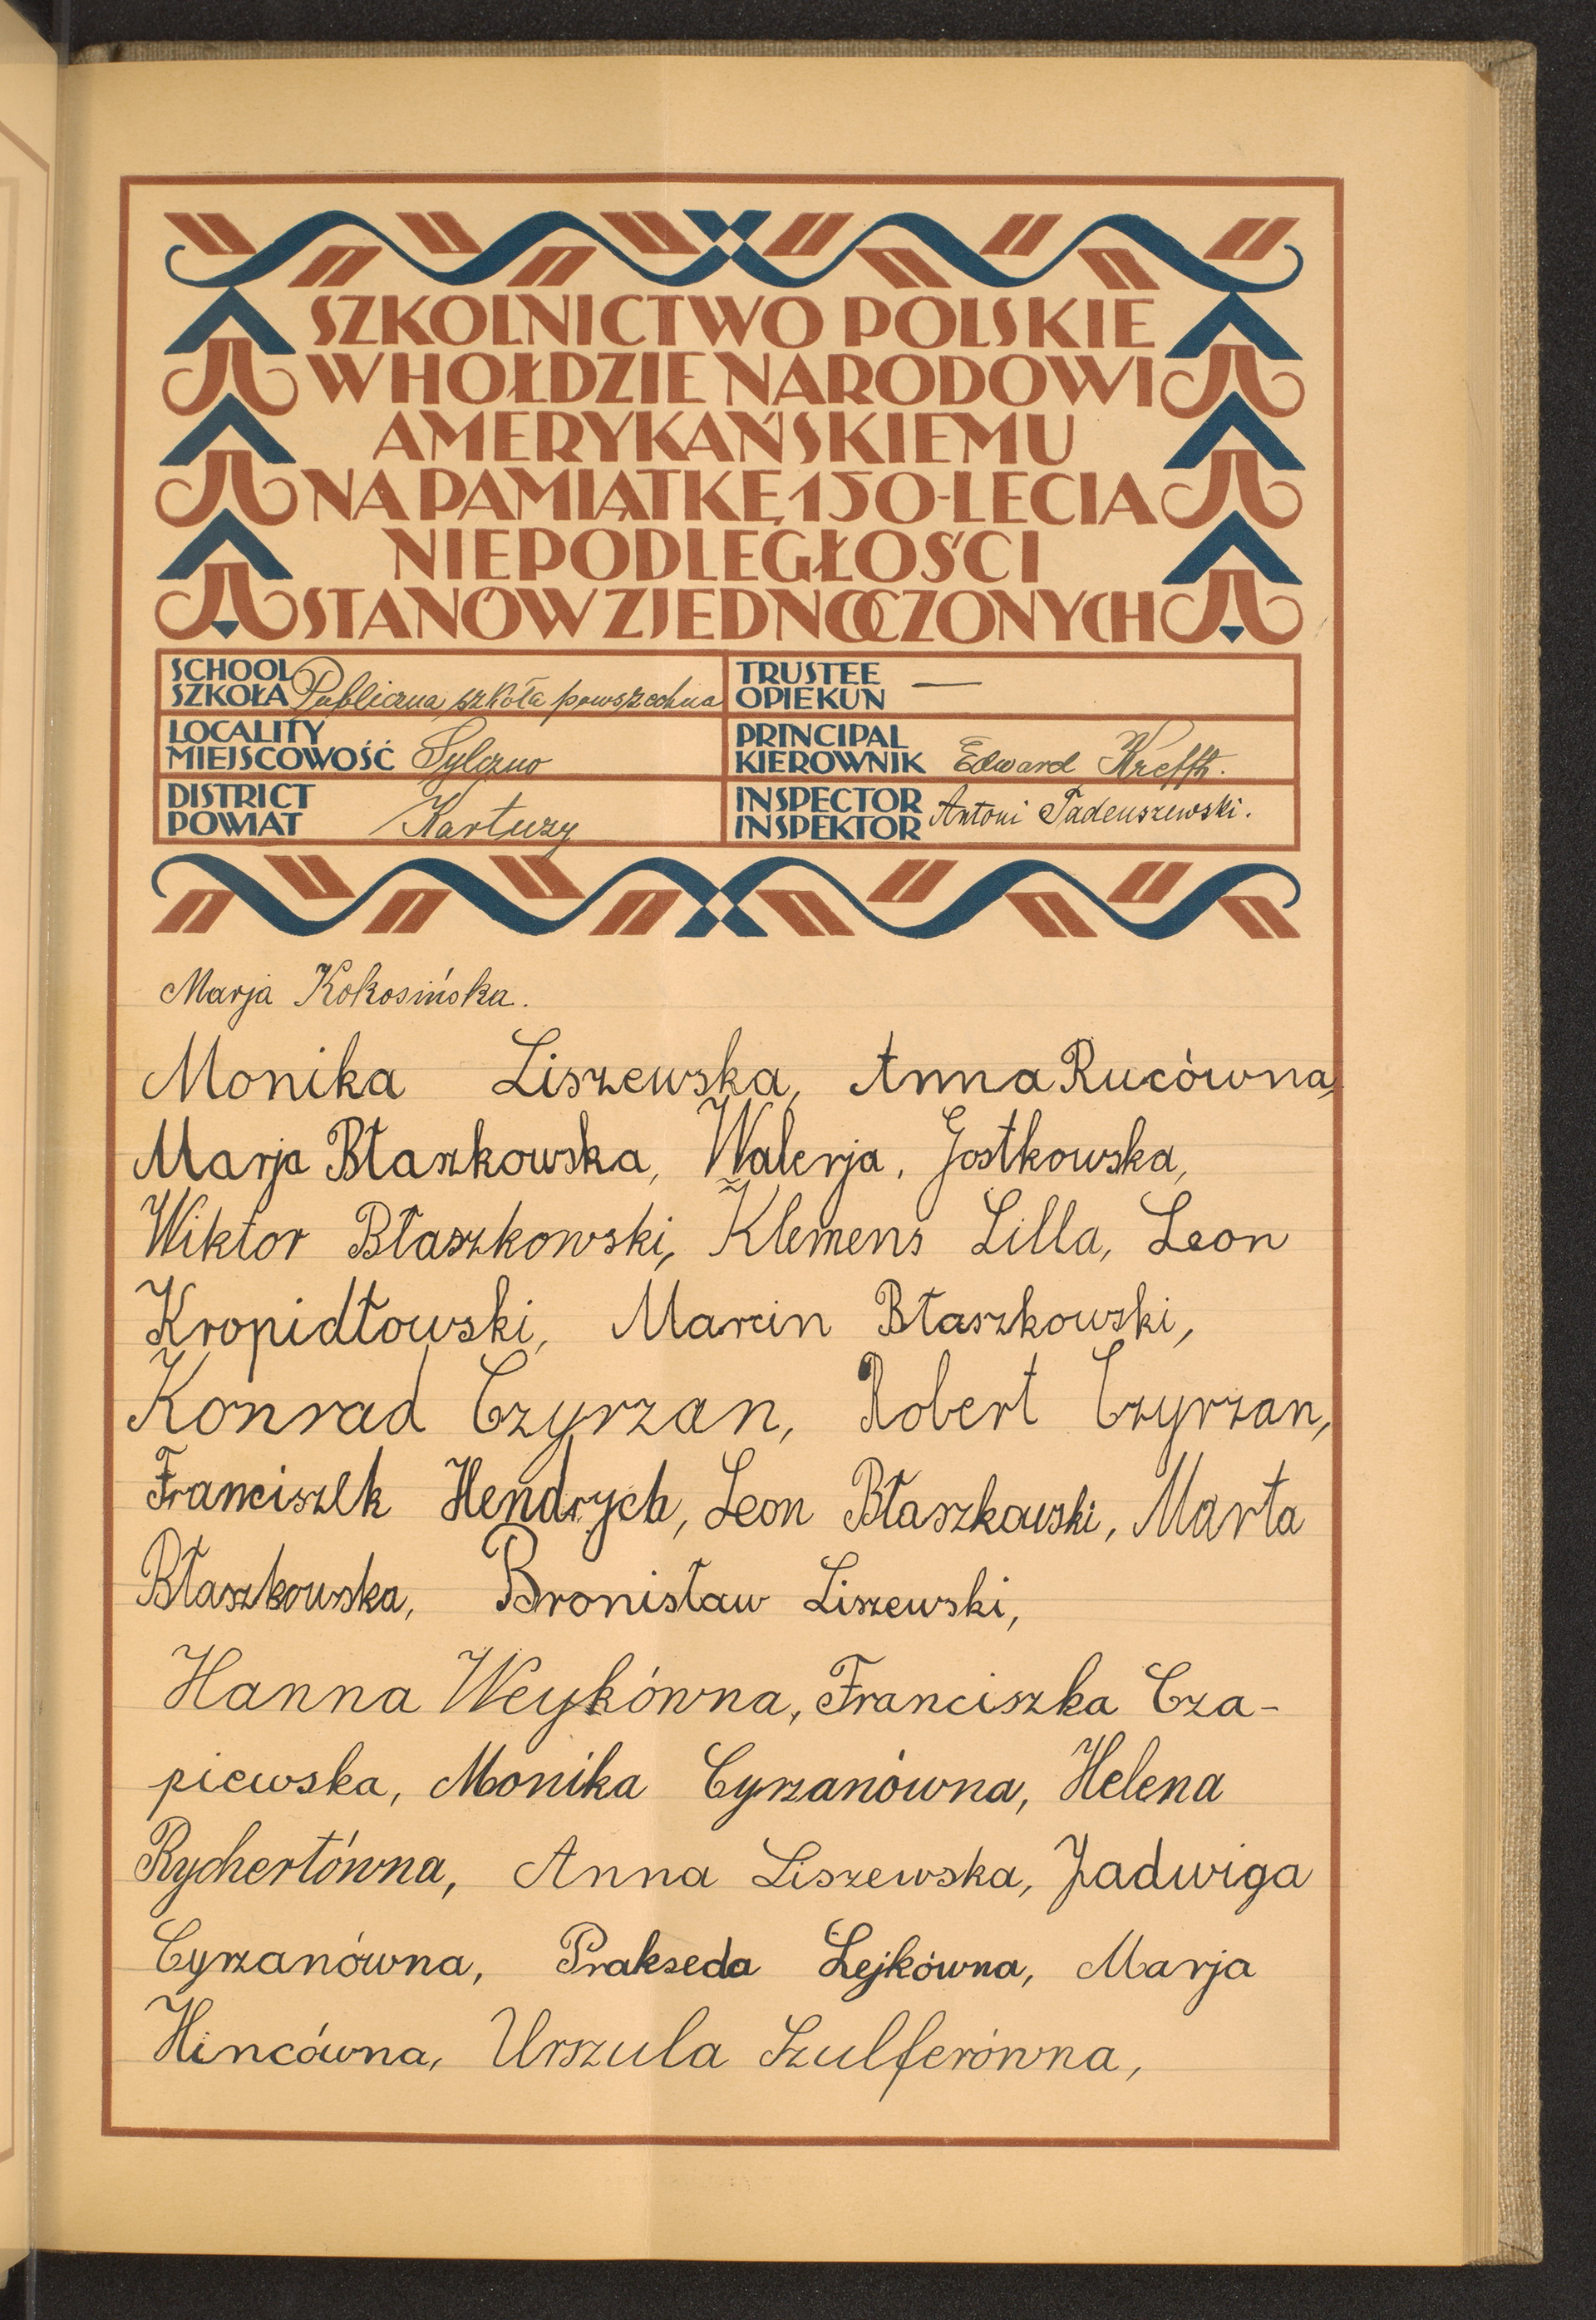 SZKOLNICTWO POLSKIE
W HOŁDZIE NARODOWI
AMERYKAŃSKIEMU
NA PAMIĄTKĘ 150-LECIA
NIEPODLEGŁOŚCI
STANÓW ZJEDNOCZONYCH
SCHOOL
SZKOŁA Publiczna szkoła powszechna
TRUSTEE
OPIEKUN —
LOCALITY
MIEJSCOWOŚĆ Sylczno
PRINCIPAL
KIEROWNIK Edward Krefft.
DISTRICT
POWIAT Kartuzy
INSPECTOR
INSPEKTOR Antoni Tadeuszewski.
Marja Kokosińska.
Monika Liszewska, Anna Rucówna,
Marja Błaszkowska, Walerja, Gostkowska,
Wiktor Błaszkowski, Klemens Lilla, Leon
Kropidłowski, Marcin Błaszkowski,
Konrad Czyrzan, Robert Czyrzan,
Franciszek Hendrych, Leon Błaszkowski, Marta
Błaszkowska, Bronisław Liszewski,
Hanna Weykówna, Franciszka Cza-
piewska, Monika Cyrzanówna, Helena
Rychertówna, Anna Liszewska, Jadwiga
Cyrzanówna, Prakseda Lejkówna, Marja
Hincówna, Urszula Szulferówna,